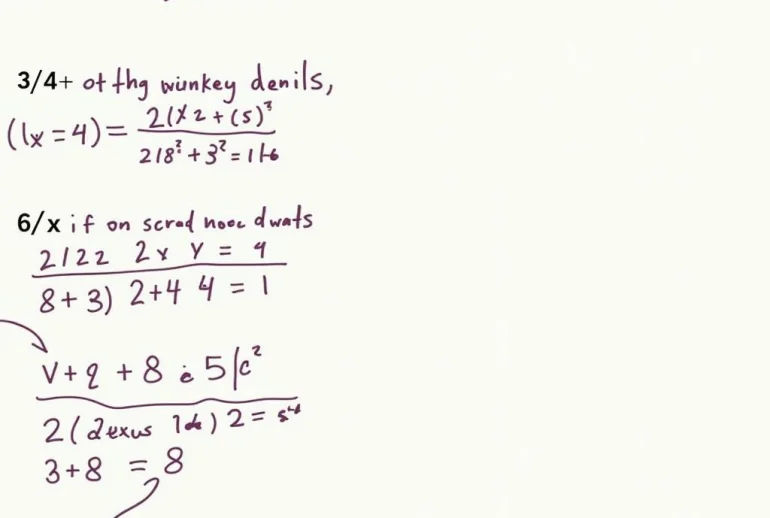 3/4+ ot thg wunkey denils,
(lx = 4) = 2(X 2 + (5)³
218² + 3² = 1
6/x if on scrad nooc dwats
2122 2x y = 9
8+3) 2+4 4 = 1
v+2 + 8 5|c²
2( dexus ) 2 =
3+8 = 8